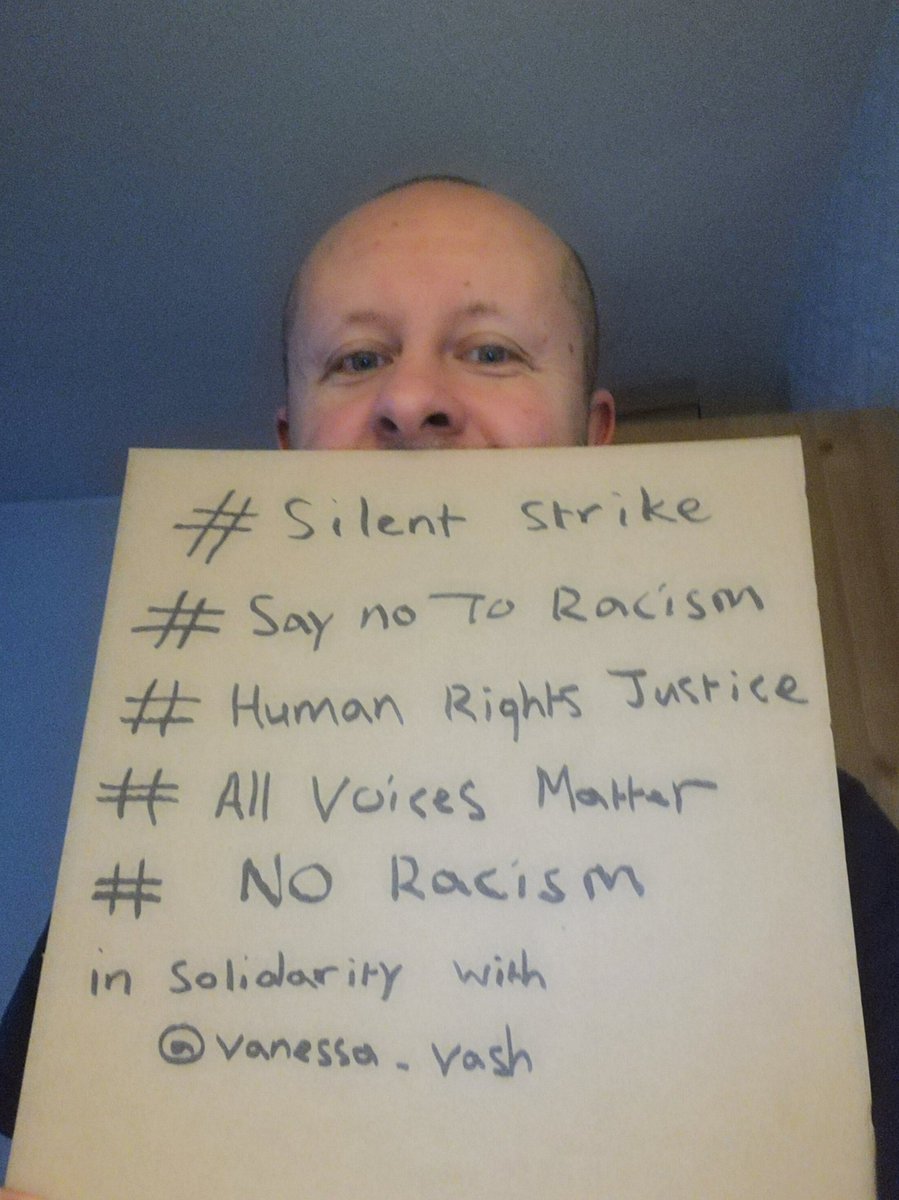 # Silent strike
# Say no To Racism
# Human Rights Justice
# All Voices Matter
# NO Racism
in solidarity with
@vanessa_vash